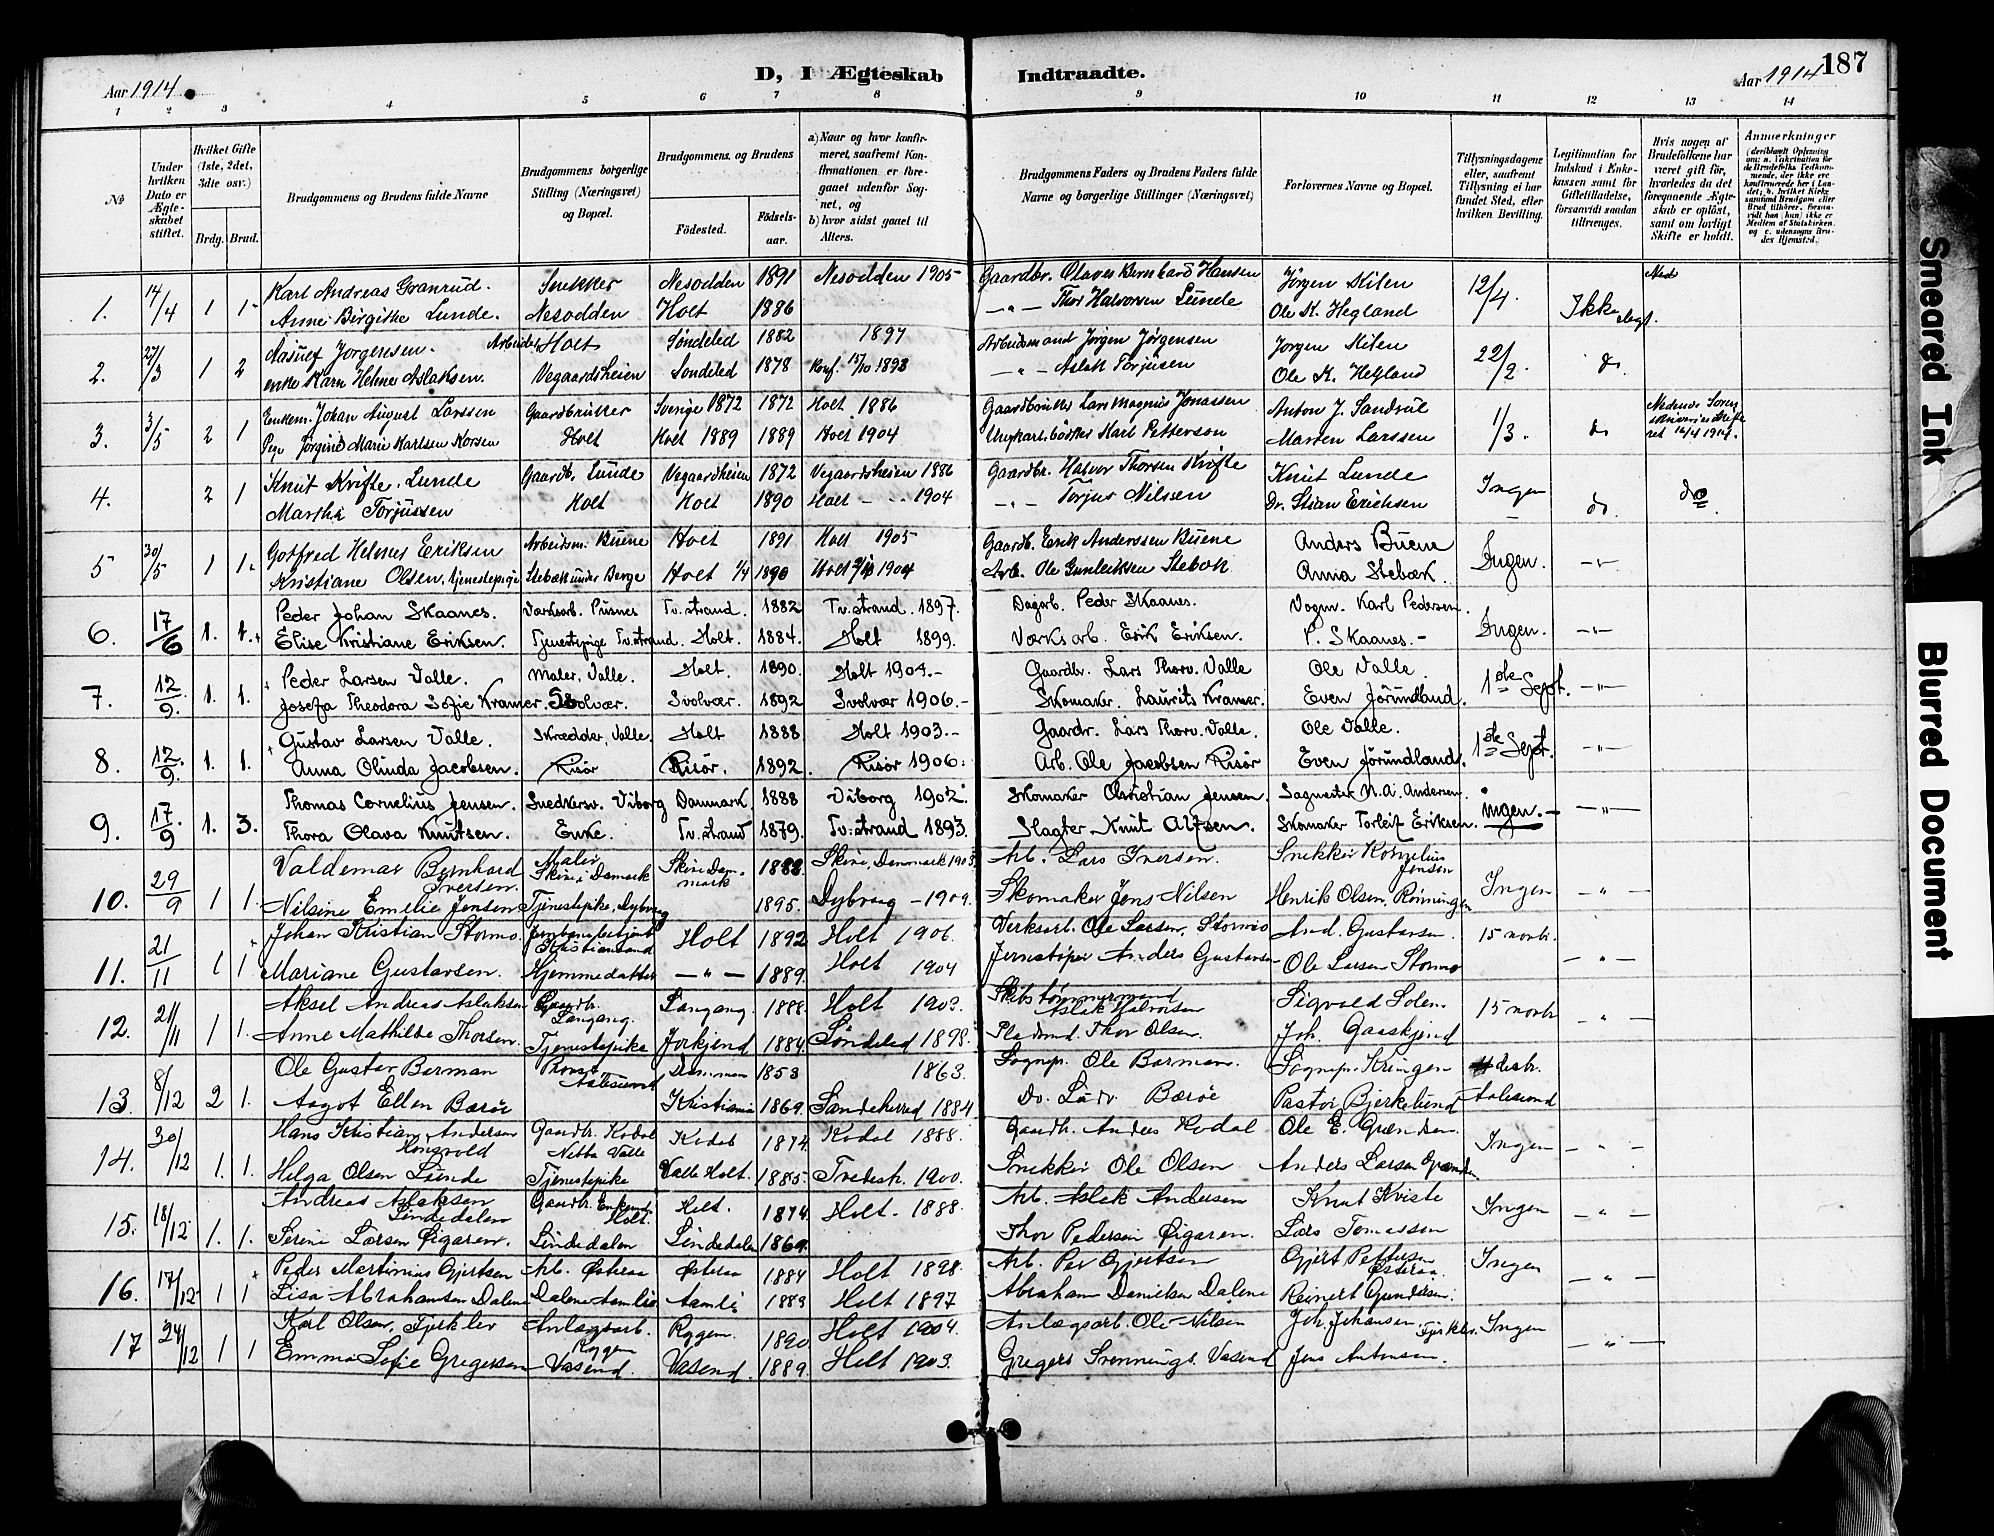 Aar 1914
D, I Ægteskab Indtraadte.
Aar 1914 187
1 2 3 4 5 6 7 8 9 10 11 12 13 14
No
Under hvilken Dato er Ægteskabet stiftet.
Hvilket Gifte (1ste, 2det, 3die osv.)
Brdg. Brud.
Brudgommens og Brudens fulde Navne
Brudgommens borgerlige Stilling (Næringsvei) og Bopæl.
Brudgommens og Brudens
Födested.
Födselsaar.
a) Naar og hvor konfirmeret, saafremt Konfirmationen er foregaaet udenfor Sognet, og
b) hvor sidst gaaet til Alters.
Brudgommens Faders og Brudens Faders fulde Navne og borgerlige Stillinger (Næringsvei)
Forlovernes Navne og Bopæl.
Tillysningsdagene eller, saafremt Tillysning ei har fundet Sted, efter hvilken Bevilling.
Legitimation for Indskud i Enkekassen samt for Giftetilladelse, forsaavidt saadan tiltrænges.
Hvis nogen af Brudefolkene har været gift för, hvorledes da det foregaaende Ægteskab er oplöst, samt om lovligt Skifte er holdt.
Anmærkninger
1. 14/4 1 1 Karl Andreas Granrud. Snekker Nesodden 1891 Nesodden 1905 Gaardbr. Olaves Bernhard Hansen Jörgen Kilen 12/4. Ikke
Anne Birgithe Lunde. Nesodden Holt 1886 —„— Thor Halvorsen Lunde Ole K. Hegland
2. 27/3 1 2 Jorgensen. Arbeider Holt Søndeled 1882 1897 Arbeidsmand Jörgen Jørgensen Jorgen Kilen 22/2. do
enke Karn Helene Aslaksen. Vegaardsheien Sondeled 1878 Konf. 15/10 1893 —„— Aslak Torjusen Ole K. Hegland
3. 3/5 2 1 Enkem. Johan August Larssen Gaardbruker Sverige 1872 1872 Holt 1886 Gaardbruker Lars Magnus Jonassen Anton J. Sandvül 1/3. do
Pige Jörgine Marie Karlsen Korsen Holt Holt 1889 1889 Holt 1904 Karl Petterson Marten Larssen
4. 2 1 Knut Kvifte, Lunde Gaardb. Lunde Vegaardsheien 1872 Vegaardsheien 1886 Gaardbr. Halvor Thorsen Kvifte Knut Lunde Ingen do. do
Martha Torjussen Holt Holt 1890 Holt — 1904 —„— Torjus Nilssen Dr. Stian Erichsen
5 30/5 1 1. Gotfred Helmes Eriksen Arbeidsm. Buene Holt 1891 Holt 1905 Gaardb. Erik Anderssen Buene Anders Buene Ingen. —„—
Kristiane Olsen, tjenestepige Stebæk under Berge Holt 1/4 1890 Holt 1904 Arb. Ole Gunleiksen Stebæk Anna Stebæk.
6. 17/6 1. 1. Peder Johan Skaanes. Værksarb. Pusnes Tv.strand. 1882 Tv.strand. 1897. Dagarb. Peder Skaanes. Vogm. Karl Pedersen. Ingen. —„—
Elise Kristiane Eriksen. Tjenestepige Tv.strand. Holt. 1884. Holt 1899. Værksarb. Erik Eriksen. P. Skaanes.
7. 12/9. 1. 1. Peder Larsen Valle. Maler, Valle. Holt. 1890. Holt 1904.— Gaardbr. Lars Thorv. Valle Ole Valle. 1ste Sept. —„—
Josefa Theodora Sofie Kramer. Svolvær. Svolvær. 1892 Svolvær 1906.— Skomaker. Laurits Kramer. Even Jörundland.
8. 12/9. 1. 1. Gustav Larsen Valle. Skrædder, Valle. Holt 1888 Holt 1903.— Gaardr. Lars Thorv. Valle. Ole Valle. 1ste Sept. —„—
Anna Olinda Jacobsen. Risör Risör. 1892. Risör 1906. Arb. Ole Jacobsen Risör Even Jörundland.
9. 17/9 1. 3. Thomas Cornelius Jensen. Snedkersv. Viborg Danmark. 1888 Viborg 1902. Skomaker Christian Jensen. Sagmester N.A. Andersen. ingen. —„—
Thora Olava Knutsen. Enke. Tv.strand 1879. Tv.strand 1893. Slagter Knut Alfsen. Skomaker Torleif Eriksen.
10. 29/9 1 1. Valdemar Bernhard Iversen. Maler Skive i Damark Skive Danmark 1888. Skive, Danmark 1903. Arb. Lars Iversen. Snekker Kornelius Jensen Ingen —„—
Nilsine Emelie Jensen Tjenestepike, Dybvaag 1895. Dybvaag — 1909. Skomaker Jens Nilsen Henrik Olsen, Rønningen
11. 21/11 1 1 Johan Kristian Stormo. Kristiansand Holt 1892 Holt 1906. Verksarb. Ole Larsen, Stormo And. Gustavsen. 15 novbr. —„—
Mariane Gustavsen. Hjemmedatter —„— 1889. Holt 1904 Jernstøper Anders Gustavsen Ole Larsen Stormo
12. 21/11 1 1. Aksel Andreas Aslaksen Gaardbr. Langang. Langang. 1888. Holt 1903. Skibstømmermand Aslak Halvorsen Sigvald Solem. 15 novbr —„—
Anne Mathilde Thorsen. Tjenestepike 1884. Søndeled 1898. Thor Olsen. Joh. Gaaskjend
13. 8/12 2 1. Ole Gustav Barman Provst Aalesund 1853 1863. Sognep. Ole Barman. Sognep. Kringen
Aagot Ellen Bærøe Kristiania 1869. Sandeherred 1884 Do. Bærøe Pastor Bjerkelund Aalesund
14. 30/12 1. 1. Hans Kristian Andersen Gaardbr. Kodal Kodal 1874. Kodal 1888. Gaardbr. Anders Kodal Ole E. Ingen —„—
Helga Olsen Lunde Tjenestepike Valle Holt. 1885. Tvedestr. 1900. Snekker Ole Olsen Anders Larsen
15. 18/12 1. 1. Andreas Aslaksen Lindedalen Gaardbr. Holt. Holt. 1874. Holt. 1888. Arb. Aslak Andersen Knut Kviste Ingen —„—
Serine Larsen Øigaren. Lindedalen Lindedalen 1869. Thor Pedersen Øigaren. Lars Tomassen
16. 17/12 1 1 Peder Martinius Gjertsen Arb. Østeraa Østeraa 1884 Holt 1898. Arb. Per Gjertsen Gjert Pettersen Østeraa. Ingen —„—
Lisa Abrahamsen Dalene Dalene Aamli Aamli 1883 Holt 1897 Abraham Danielsen Dalene Reinert Gundersen.
17 24/12 1 1 Karl Olsen, Fjerkler Anlægsarb. Ryggen Ryggen. 1890 Holt 1904. Anlægsarb. Ole Nilsen Joh. Johansen Ingen —„—
Emma Sofie Gregersen Vasend. Vasend. 1889. Holt 1903. Gregers Svennings. Vasend Jens Antonsen.
Smeared Ink
Blurred Document